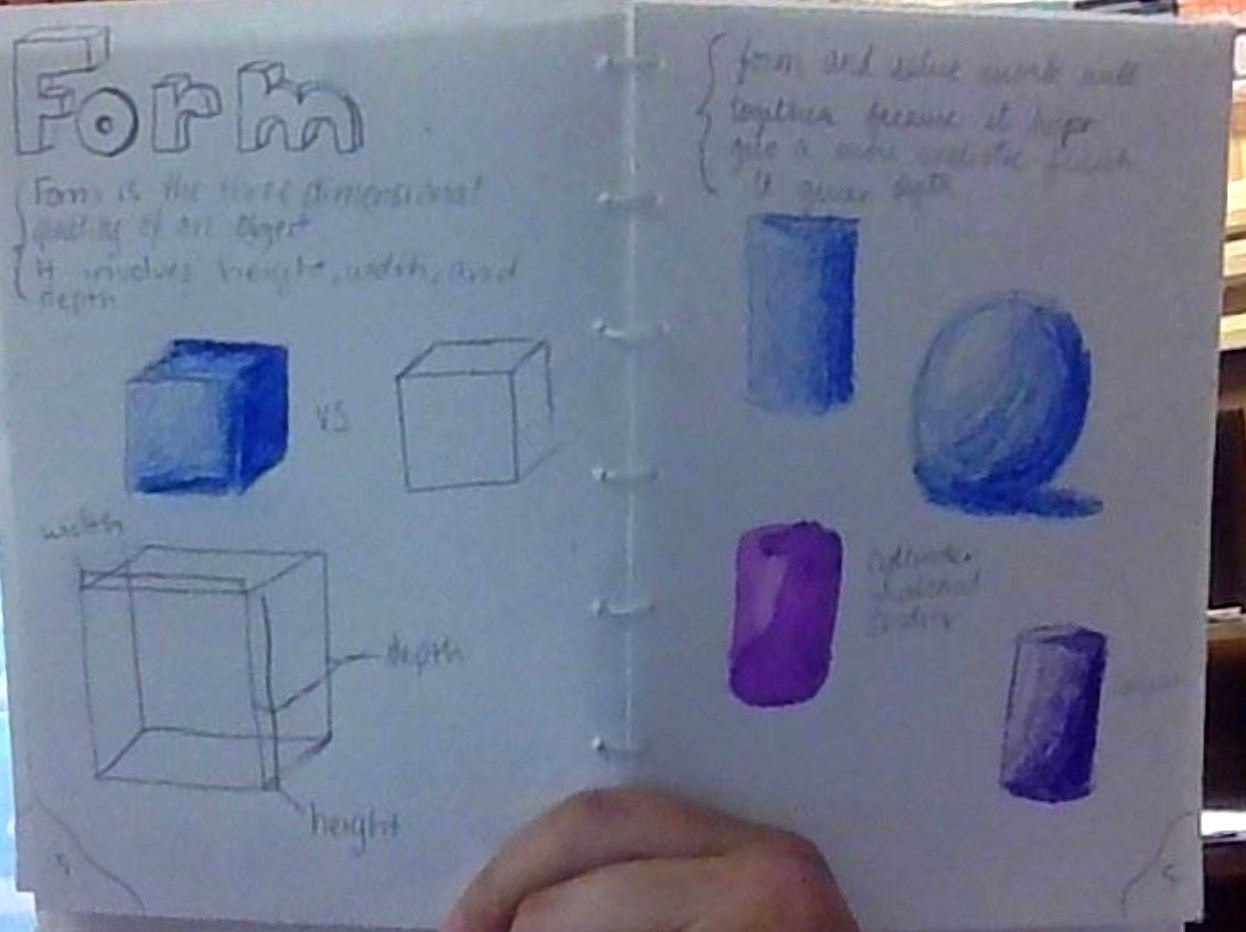 Form
Form is the three dimensional
quality of an object
It involves height, width, and
depth
VS
width
depth
height
form and value work well
together because it helps
give a more realistic finish
It gives depth
cylinder